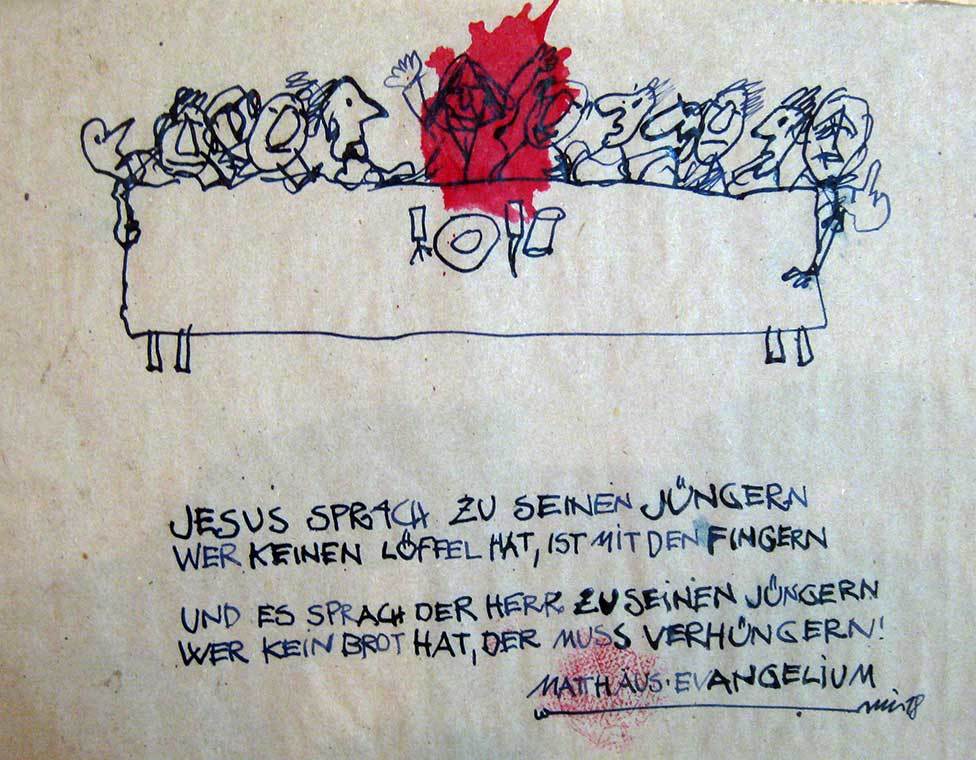 JESUS SPRACH ZU SEINEN JÜNGERN
WER KEINEN LÖFFEL HAT, IST MIT DEN FINGERN
UND ES SPRACH DER HERR ZU SEINEN JÜNGERN
WER KEIN BROT HAT, DER MUSS VERHÜNGERN!
MATTHÄUS·EVANGELIUM